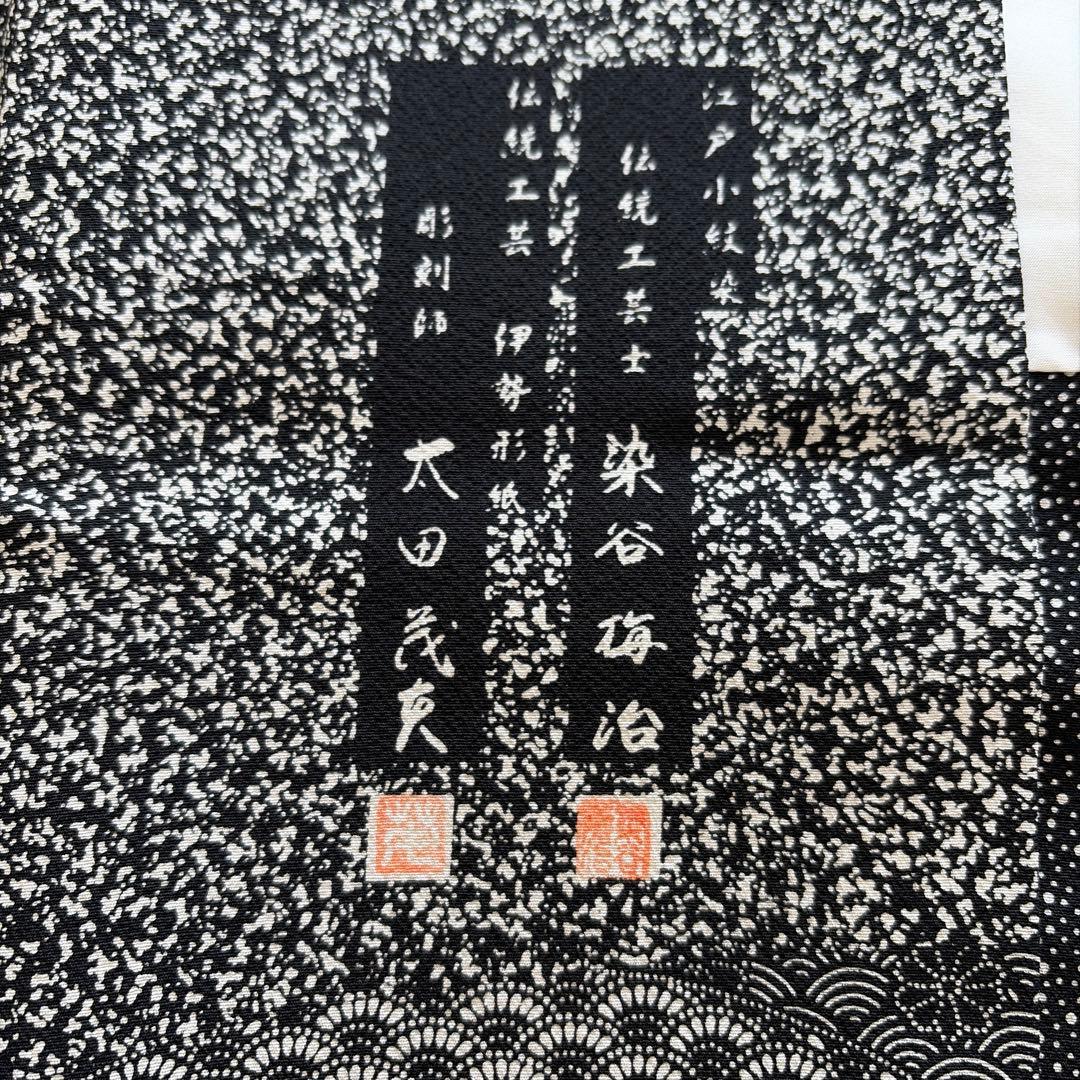 江戸小紋染
伝統工芸士 染谷梅治
伝統工芸 伊勢形紙
彫刻師 太田茂夫